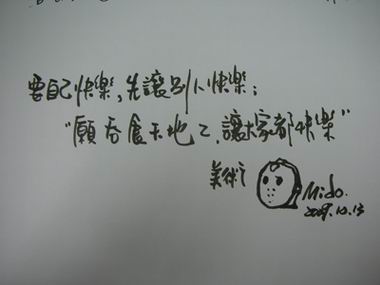 要自己快樂,先讓別人快樂;
"願吞食天地乙,讓大家都快樂"
美術
Mido.
2009.10.13